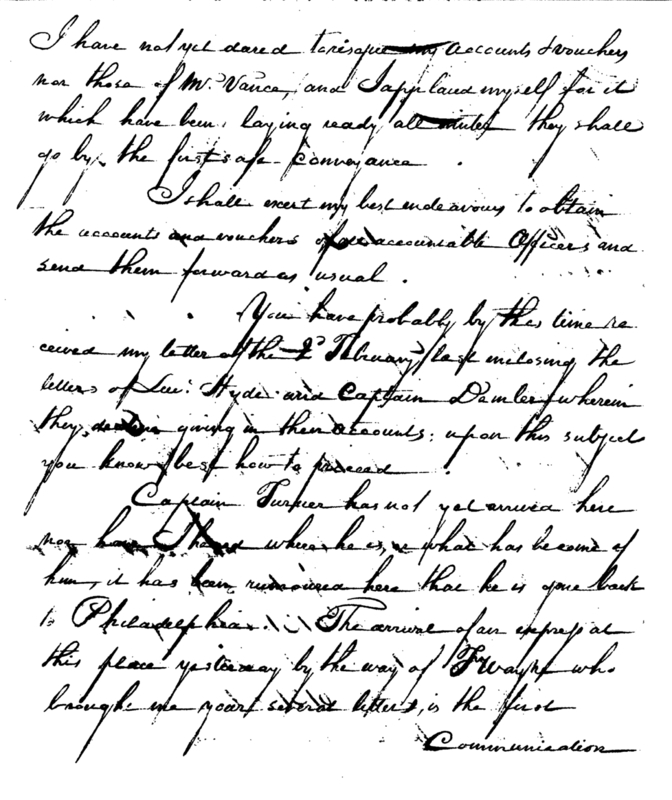 I have not yet dared to risque my accounts & vouchers
nor those of Mr. Vance, and I applaud myself for it
which have been laying ready all winter they shall
go by the first safe Conveyance.
I shall exert my best endeavours to obtain
the accounts and vouchers of accountable Officers and
send them forward as usual.
You have probably by this time re
ceived my letter of the 2d February last enclosing the
letters of Lieut. Hyde and Captain Demler wherein
they decline giving in their accounts; upon this subject
you know best how to proceed.
Captain Turner has not yet arrived here
nor have I heard where he is, or what has become of
him, it has been rumoured here that he is gone back
to Philadelphia. The arrival of an express at
this place yesterday by the way of Ft Wayne who
brought me your several letters, is the first
Communication